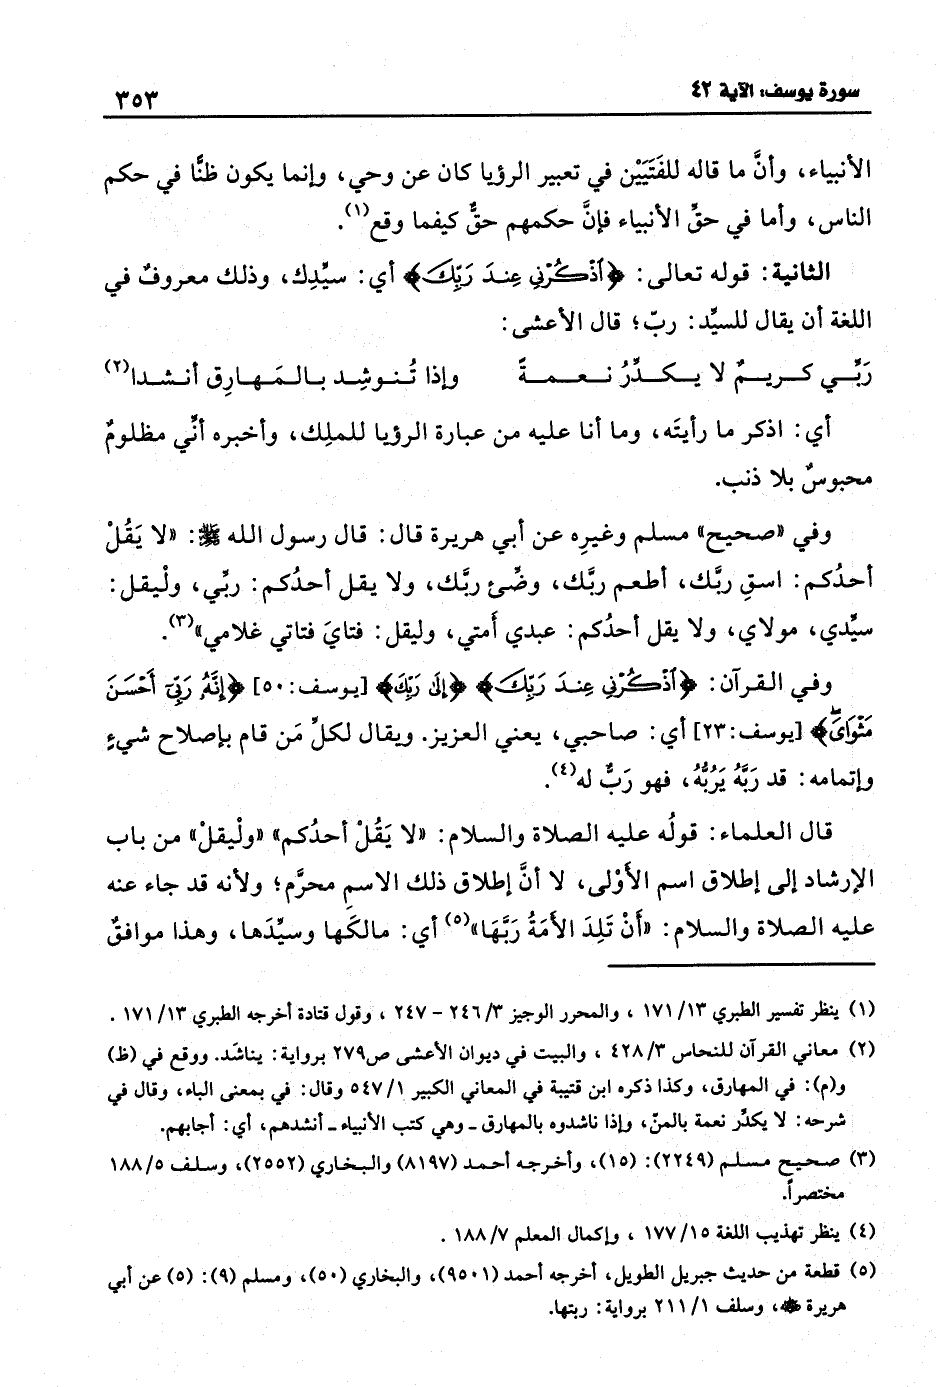 سورة يوسف: الآية ٤٢
٣٥٣
الأنبياء، وأنَّ ما قاله للفَتَيَيْن في تعبير الرؤيا كان عن وحي، وإنما يكون ظنًّا في حكم
الناس، وأما في حقِّ الأنبياء فإنَّ حكمهم حقٌّ كيفما وقع(١).
الثانية: قوله تعالى: ﴿اَذْكُرْنِي عِندَ رَبِّكَ﴾ أي: سيِّدِك، وذلك معروفٌ في
اللغة أن يقال للسيِّد: ربّ؛ قال الأعشى:
رَبِّي كريمٌ لا يكدِّرُ نعمةً وإذا تُنوشِد بالمَهارِق أنشدا(٢)
أي: اذكر ما رأيتَه، وما أنا عليه من عبارة الرؤيا للملِك، وأخبره أنِّي مظلومٌ
محبوسٌ بلا ذنب.
وفي «صحيح» مسلم وغيرِه عن أبي هريرة قال: قال رسول الله ﷺ: «لا يَقُلْ
أحدُكم: اسقِ ربَّك، أطعم ربَّك، وضِّئ ربَّك، ولا يقل أحدُكم: ربِّي، ولْيقل:
سيِّدي، مولاي، ولا يقل أحدُكم: عبدي أَمتي، وليقل: فتايَ فتاتي غلامي»(٣).
وفي القرآن: ﴿اَذْكُرْنِي عِندَ رَبِّكَ﴾ ﴿إِلَى رَبِّكَ﴾ [يوسف: ٥٠] ﴿إِنَّهُ رَبِّي أَحْسَنَ
مَثْوَايَ﴾ [يوسف: ٢٣] أي: صاحبي، يعني العزيز. ويقال لكلِّ مَن قام بإصلاح شيءٍ
وإتمامه: قد رَبَّهُ يَرُبُّهُ، فهو رَبٌّ له(٤).
قال العلماء: قولُه عليه الصلاة والسلام: «لا يَقُلْ أحدُكم» «ولْيقلْ» من باب
الإرشاد إلى إطلاق اسم الأَوْلى، لا أنَّ إطلاق ذلك الاسمِ محرَّم؛ ولأنه قد جاء عنه
عليه الصلاة والسلام: «أَنْ تَلِدَ الأمَةُ رَبَّهَا»(٥) أي: مالكَها وسيِّدَها، وهذا موافقٌ
(١) ينظر تفسير الطبري ١٣/ ١٧١ ، والمحرر الوجيز ٣/ ٢٤٦ - ٢٤٧ ، وقول قتادة أخرجه الطبري ١٣/ ١٧١ .
(٢) معاني القرآن للنحاس ٣/ ٤٢٨ ، والبيت في ديوان الأعشى ص٢٧٩ برواية: يناشَد. ووقع في (ظ)
و(م): في المهارق، وكذا ذكره ابن قتيبة في المعاني الكبير ١/ ٥٤٧ وقال: في بمعنى الباء، وقال في
شرحه: لا يكدِّر نعمة بالمنّ، وإذا ناشدوه بالمهارق ـ وهي كتب الأنبياء ـ أنشدهم، أي: أجابهم.
(٣) صحيح مسلم (٢٢٤٩): (١٥)، وأخرجه أحمد (٨١٩٧) والبخاري (٢٥٥٢)، وسلف ٥/ ١٨٨
مختصراً.
(٤) ينظر تهذيب اللغة ١٥/ ١٧٧ ، وإكمال المعلم ٧/ ١٨٨ .
(٥) قطعة من حديث جبريل الطويل، أخرجه أحمد (٩٥٠١)، والبخاري (٥٠)، ومسلم (٩): (٥) عن أبي
هريرة ﷺ، وسلف ١/ ٢١١ برواية: ربتها.